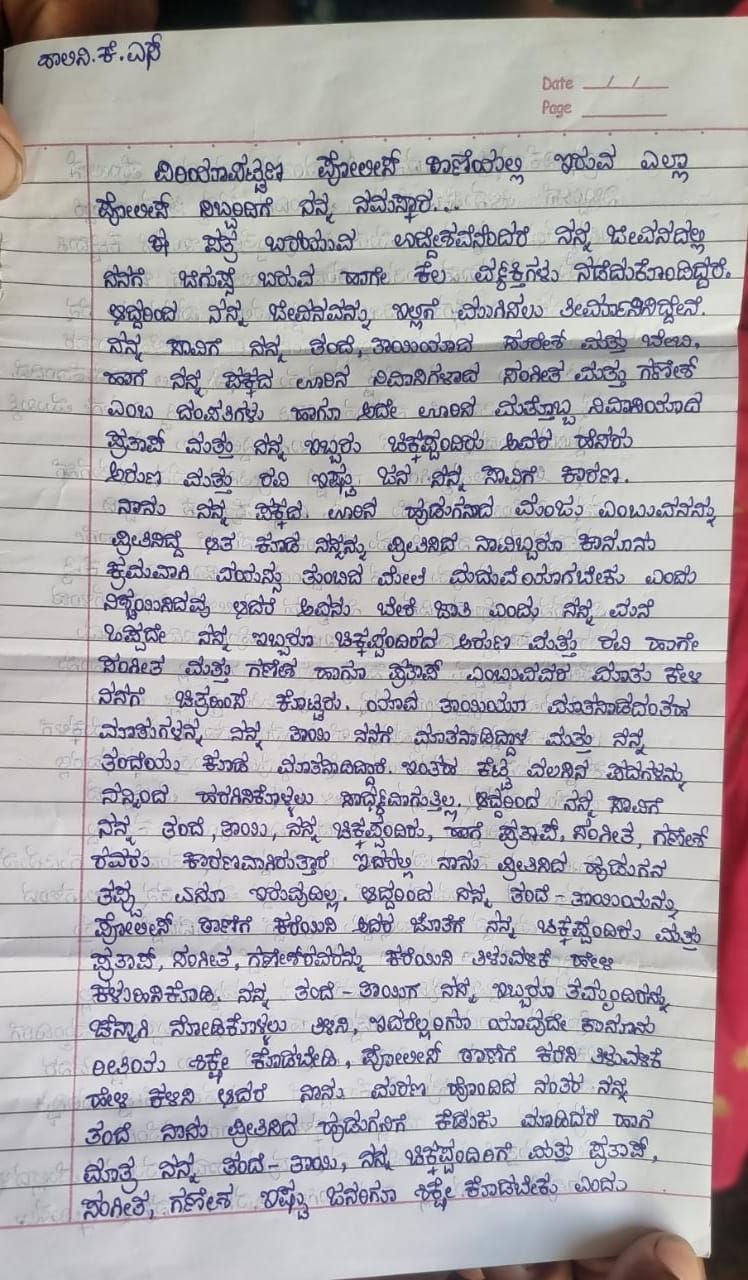 ಶಾಲಿನಿ.ಕೆ.ಎಸ್
Date __/__/__
Page ______
ಪಿರಿಯಾಪಟ್ಟಣ ಪೋಲೀಸ್ ಠಾಣೆಯಲ್ಲಿ ಇರುವ ಎಲ್ಲಾ
ಪೋಲೀಸ್ ಸಿಬ್ಬಂದಿಗೆ ನನ್ನ ನಮಸ್ಕಾರ...
ಈ ಪತ್ರ ಬರೆಯುವ ಉದ್ದೇಶವೆನೆಂದರೆ ನನ್ನ ಜೀವನದಲ್ಲಿ
ನನಗೆ ಜಿಗುಪ್ಸೆ ಬರುವ ಹಾಗೇ ಕೆಲ ವ್ಯಕ್ತಿಗಳು ನಡೆದುಕೊಂಡಿದ್ದರೆ.
ಆದ್ದರಿಂದ ನನ್ನ ಜೀವನವನ್ನು ಇಲ್ಲಿಗೆ ಮುಗಿಸಲು ತೀರ್ಮಾನಿಸಿದ್ದೇನೆ.
ನನ್ನ ಸಾವಿಗೆ ನನ್ನ ತಂದೆ, ತಾಯಿಯಾದ ಸುರೇಶ ಮತ್ತು ಬೇಬಿ,
ಹಾಗೆ ನನ್ನ ಪಕ್ಕದ ಊರಿನ ನಿವಾಸಿಗಳಾದ ಸಂಗೀತ ಮತ್ತು ಗಣೇಶ
ಎಂಬ ದಂಪತಿಗಳು ಹಾಗೂ ಅದೇ ಊರಿನ ಮತ್ತೊಬ್ಬ ನಿವಾಸಿಯಾದ
ಪ್ರತಾಪ್ ಮತ್ತು ನನ್ನ ಇಬ್ಬರು ಚಿಕ್ಕಪ್ಪಂದಿರು ಅವರ ಹೆಸರು
ಅರುಣ ಮತ್ತು ರವಿ ಇಷ್ಟು ಜನ ನನ್ನ ಸಾವಿಗೆ ಕಾರಣ.
ನಾನು ನನ್ನ ಪಕ್ಕದ ಊರಿನ ಹುಡುಗನಾದ ಮಂಜು ಎಂಬುವನನ್ನು
ಪ್ರೀತಿಸಿದ್ದೆ ಆತ ಕೂಡ ನನ್ನನ್ನು ಪ್ರೀತಿಸಿದ ನಾವಿಬ್ಬರೂ ಕಾನೂನು
ಕ್ರಮವಾಗಿ ವಯಸ್ಸು ತುಂಬಿದ ಮೇಲೆ ಮದುವೆಯಾಗಬೇಕು ಎಂದು
ನಿಶ್ಚಯಿಸಿದೆವು ಆದರೆ ಅವನು ಬೇರೆ ಜಾತಿ ಎಂದು ನನ್ನ ಮನೆ
ಒಪ್ಪದೇ ನನ್ನ ಇಬ್ಬರೂ ಚಿಕ್ಕಪ್ಪಂದಿರದ ಅರುಣ ಮತ್ತು ರವಿ ಹಾಗೇ
ಸಂಗೀತ ಮತ್ತು ಗಣೇಶ ಹಾಗೂ ಪ್ರತಾಪ್ ಎಂಬುವವರ ಮಾತು ಕೇಳಿ
ನನಗೆ ಚಿತ್ರಹಿಂಸೆ ಕೊಟ್ಟರು. ಯಾವ ತಾಯಿಯೂ ಮಾತನಾಡದಂತಹ
ಮಾತುಗಳನ್ನ ನನ್ನ ತಾಯಿ ನನಗೆ ಮಾತನಾಡಿದ್ದಾಳೆ ಮತ್ತು ನನ್ನ
ತಂದೆಯು ಕೂಡ ಮಾತನಾಡಿದ್ದಾರೆ. ಇಂತಹ ಕೆಟ್ಟ ಹೊಲಸಿನ ಪದಗಳನ್ನು
ನನ್ನಿಂದ ಅರಗಿಸಿಕೊಳ್ಳಲು ಸಾಧ್ಯವಾಗುತ್ತಿಲ್ಲ. ಆದ್ದರಿಂದ ನನ್ನ ಸಾವಿಗೆ
ನನ್ನ ತಂದೆ, ತಾಯಿ, ನನ್ನ ಚಿಕ್ಕಪ್ಪಂದಿರು, ಹಾಗೆ ಪ್ರತಾಪ್, ಸಂಗೀತ, ಗಣೇಶ್
ರವರು ಕಾರಣವಾಗಿರುತ್ತಾರೆ ಇದರಲ್ಲಿ ನಾನು ಪ್ರೀತಿಸಿದ ಹುಡುಗನ
ತಪ್ಪು ಏನೂ ಇರುವುದಿಲ್ಲ. ಆದ್ದರಿಂದ ನನ್ನ ತಂದೆ-ತಾಯಿಯನ್ನು
ಪೋಲೀಸ್ ಠಾಣೆಗೆ ಕರೆಯಿಸಿ ಅದರ ಜೊತೆಗೆ ನನ್ನ ಚಿಕ್ಕಪ್ಪಂದಿರು ಮತ್ತು
ಪ್ರತಾಪ್, ಸಂಗೀತ, ಗಣೇಶ್‌ರವರನ್ನು ಕರೆಯಿಸಿ ತಿಳುವಳಿಕೆ ಹೇಳಿ
ಕಳುಹಿಸಿಕೊಡಿ. ನನ್ನ ತಂದೆ-ತಾಯಿಗೆ ನನ್ನ ಇಬ್ಬರೂ ತಮ್ಮಂದಿರನ್ನು
ಚೆನ್ನಾಗಿ ನೋಡಿಕೊಳ್ಳಲು ತಿಳಿಸಿ, ಇವರೆಲ್ಲರಿಗೂ ಯಾವುದೇ ಕಾನೂನು
ರೀತಿಯ ಶಿಕ್ಷೇ ಕೊಡಬೇಡಿ, ಪೋಲೀಸ್ ಠಾಣೆಗೆ ಕರೆಸಿ ತಿಳುವಳಿಕೆ
ಹೇಳಿ ಕಳಿಸಿ ಆದರೆ ನಾನು ಮರಣ ಹೊಂದಿದ ನಂತರ ನನ್ನ
ತಂದೆ ನಾನು ಪ್ರೀತಿಸಿದ ಹುಡುಗನಿಗೆ ಕೆಡುಕು ಮಾಡಿದರೆ ಹಾಗ
ಮಾತ್ರ ನನ್ನ ತಂದೆ-ತಾಯಿ, ನನ್ನ ಚಿಕ್ಕಪ್ಪಂದಿರಿಗೆ ಮತ್ತು ಪ್ರತಾಪ್,
ಸಂಗೀತ, ಗಣೇಶ ಇಷ್ಟು ಜನರಿಗೂ ಶಿಕ್ಷೇ ಕೊಡಬೇಕು ಎಂದು